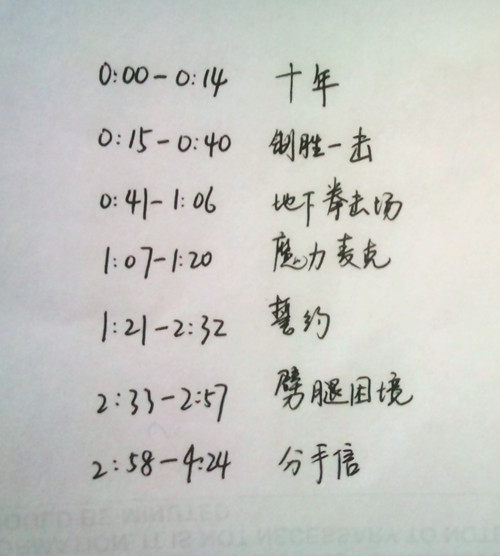 0:00-0:14 十年
0:15-0:40 制胜一击
0:41-1:06 地下拳击场
1:07-1:20 魔力麦克
1:21-2:32 誓约
2:33-2:57 劈腿困境
2:58-4:24 分手信